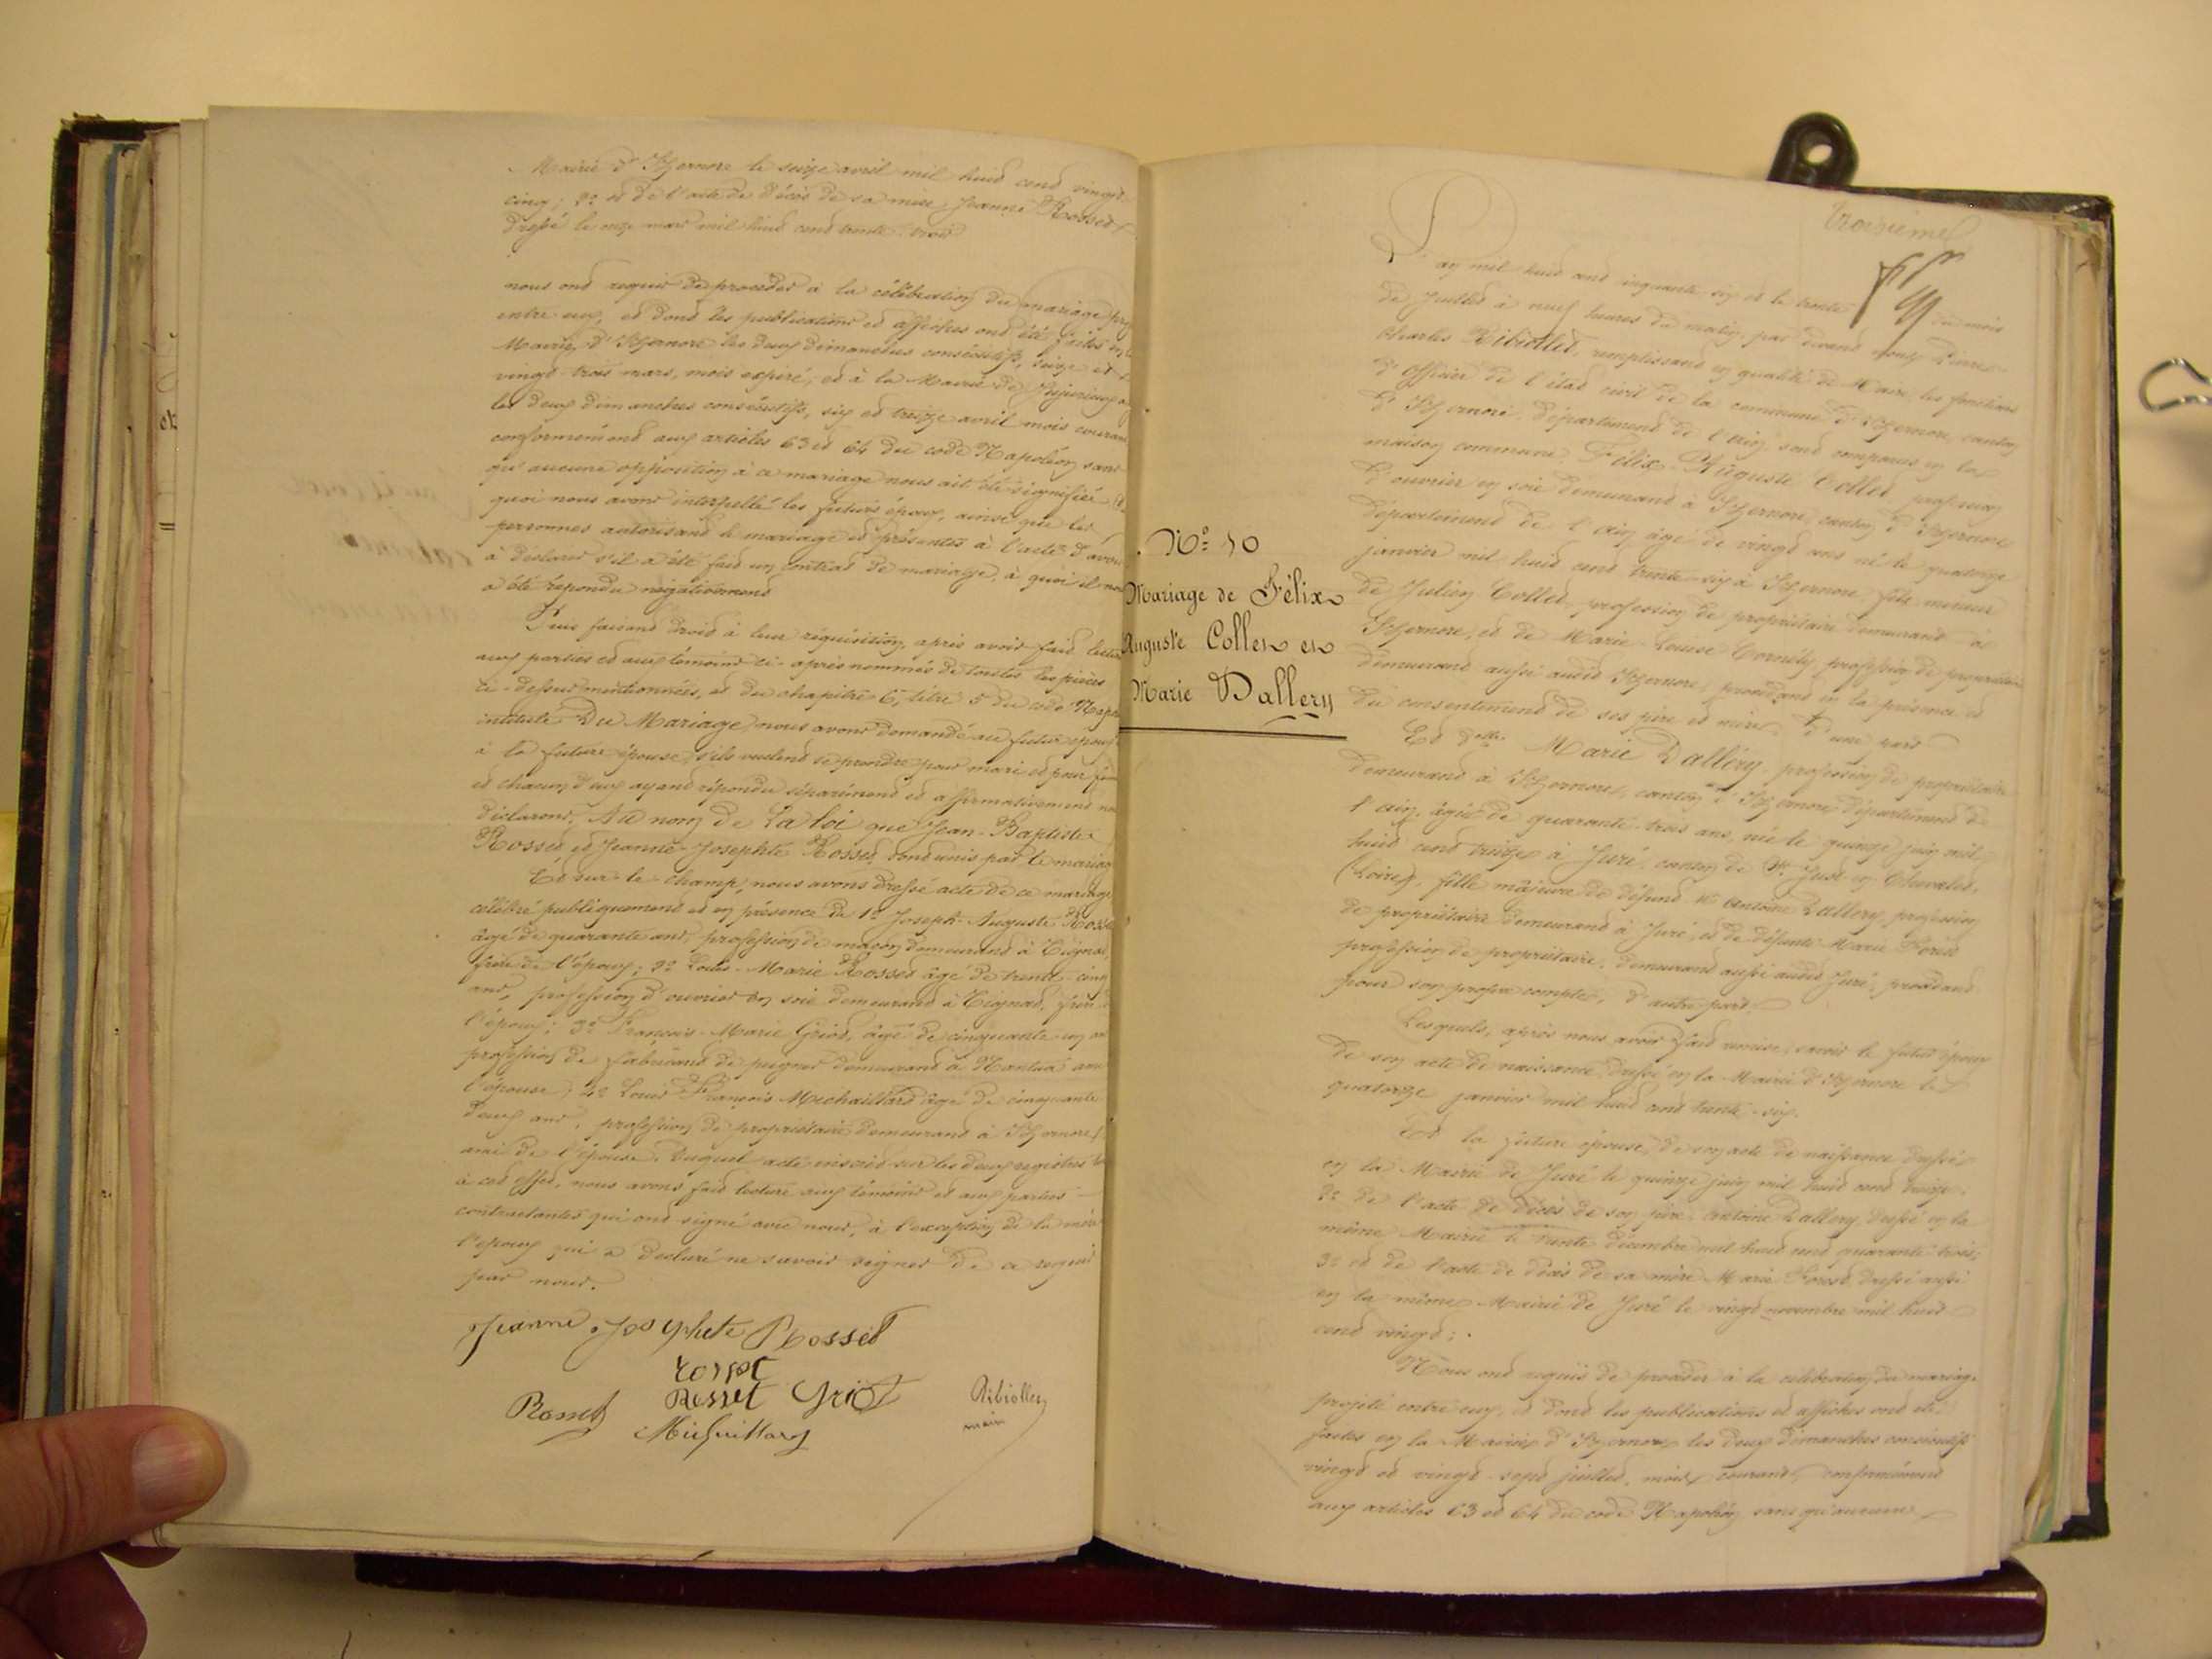 Mairie d'Izernore le seize avril mil huit cent vingt
cinq; 3º et de l'acte de décès de sa mère Jeanne Rosset
dressé le onze mars mil huit cent trente-trois
nous ont requis de procéder à la célébration du mariage proj
entre eux, et dont les publications et affiches ont été faites en la
Mairie d'Izernore les deux dimanches consécutifs, seize et
vingt-trois mars, mois expiré, et à la Mairie de
les deux dimanches consécutifs, six et treize avril mois courant
conformément aux articles 63 et 64 du code Napoléon sans
qu'aucune opposition à ce mariage nous ait été signifiée
quoi nous avons interpellé les futurs époux, ainsi que les
personnes autorisant le mariage et présentes à l'acte d'avoir
à déclarer s'il a été fait un contrat de mariage, à quoi il nous
a été répondu négativement
Puis faisant droit à leur réquisition, après avoir fait lecture
aux parties et aux témoins ci-après nommés de toutes les pièces
ci-dessus mentionnées, et du chapitre 6, titre 5 du code Napo
intitulé Du Mariage, nous avons demandé au futur époux
à la future épouse, s'ils veulent se prendre pour mari et pour fem
et chacun d'eux ayant répondu séparément et affirmativement nous
déclarons, Au nom de La loi que Jean-Baptiste
Rosset et Jeanne-Josephte Rosset sont unis par le mariage
Et sur-le-champ, nous avons dressé acte de ce mariage
célébré publiquement et en présence de 1º Joseph-Auguste Rosset
âgé de quarante ans, profession de maçon demeurant à Tignat,
frère de l'époux; 2º Louis-Marie Rosset âgé de trente-cinq
ans, profession d'ouvrier en soie demeurant à Tignat, frère
l'époux; 3º François-Marie Griot, âgé de cinquante-un ans
profession de fabricant de peignes demeurant à Nantua ami
l'épouse; 4º Louis François Michaillard âgé de cinquante
deux ans, profession de propriétaire demeurant à Izernore
ami de l'épouse. Duquel acte inscrit sur les deux registres
à cet effet, nous avons fait lecture aux témoins et aux parties
contractantes qui ont signé avec nous, à l'exception de la mère
l'époux qui a déclaré ne savoir signer de ce requis
par nous.
Jeanne Josephete Rosset
rosset
Rosset Rosset Griot Ribiollet
maire
Michaillard
Nº 10
Mariage de Félix
Auguste Collet et
Marie Dallery
troisième
L'an mil huit cent cinquante-six et le trente du mois
de Juillet à neuf heures du matin, par devant nous Pierre
Charles Ribiollet, remplissant en qualité de Maire, les fonctions
d'Officier de l'état civil de la commune d'Izernore, canton
d'Izernore département de l'ain, sont comparus en la
maison commune Félix-Auguste Collet, profession
d'ouvrier en soie demeurant à Izernore, canton d'Izernore
département de l'ain âgé de vingt ans né le quatorze
janvier mil huit cent trente-six à Izernore, fils mineur
de Julien Collet, profession de propriétaire demeurant à
Izernore, et de Marie-Louise Cornély profession de propriétaire
demeurant aussi audit Izernore, procédant en la présence et
du consentement de ses père et mère, d'une part
Et delle Marie Dalléry, profession de propriétaire
demeurant à Izernore, canton d'Izernore, département de
l'ain, âgée de quarante-trois ans, née le quinze juin mil
huit cent treize à Juré, canton de St Just-en-Chevalet,
(Loire), fille majeure de défunt Antoine Dallery, profession
de propriétaire demeurant à Juré et de défunte Marie Forest
profession de propriétaire, demeurant aussi audit Juré, procédant
pour son propre compte, d'autre part
Lesquels, après nous avoir fait remise, savoir le futur époux
de son acte de naissance dressé en la Mairie d'Izernore le
quatorze janvier mil huit cent trente-six.
Et la future épouse, de son acte de naissance dressé
en la Mairie de Juré le quinze juin mil huit cent treize.
2º de l'acte de décès de son père Antoine Dallery dressé en la
même Mairie le trente décembre mil huit cent quarante trois;
3º et de l'acte de décès de sa mère Marie Forest dressé aussi
en la même Mairie de Juré le vingt novembre mil huit
cent vingt;.
Nous ont requis de procéder à la célébration du mariage
projeté entre eux, et dont les publications et affiches ont été
faites en la Mairie d'Izernore les deux dimanches consécutifs
vingt et vingt-sept juillet, mois courant, conformément
aux articles 63 et 64 du code Napoléon sans qu'aucune